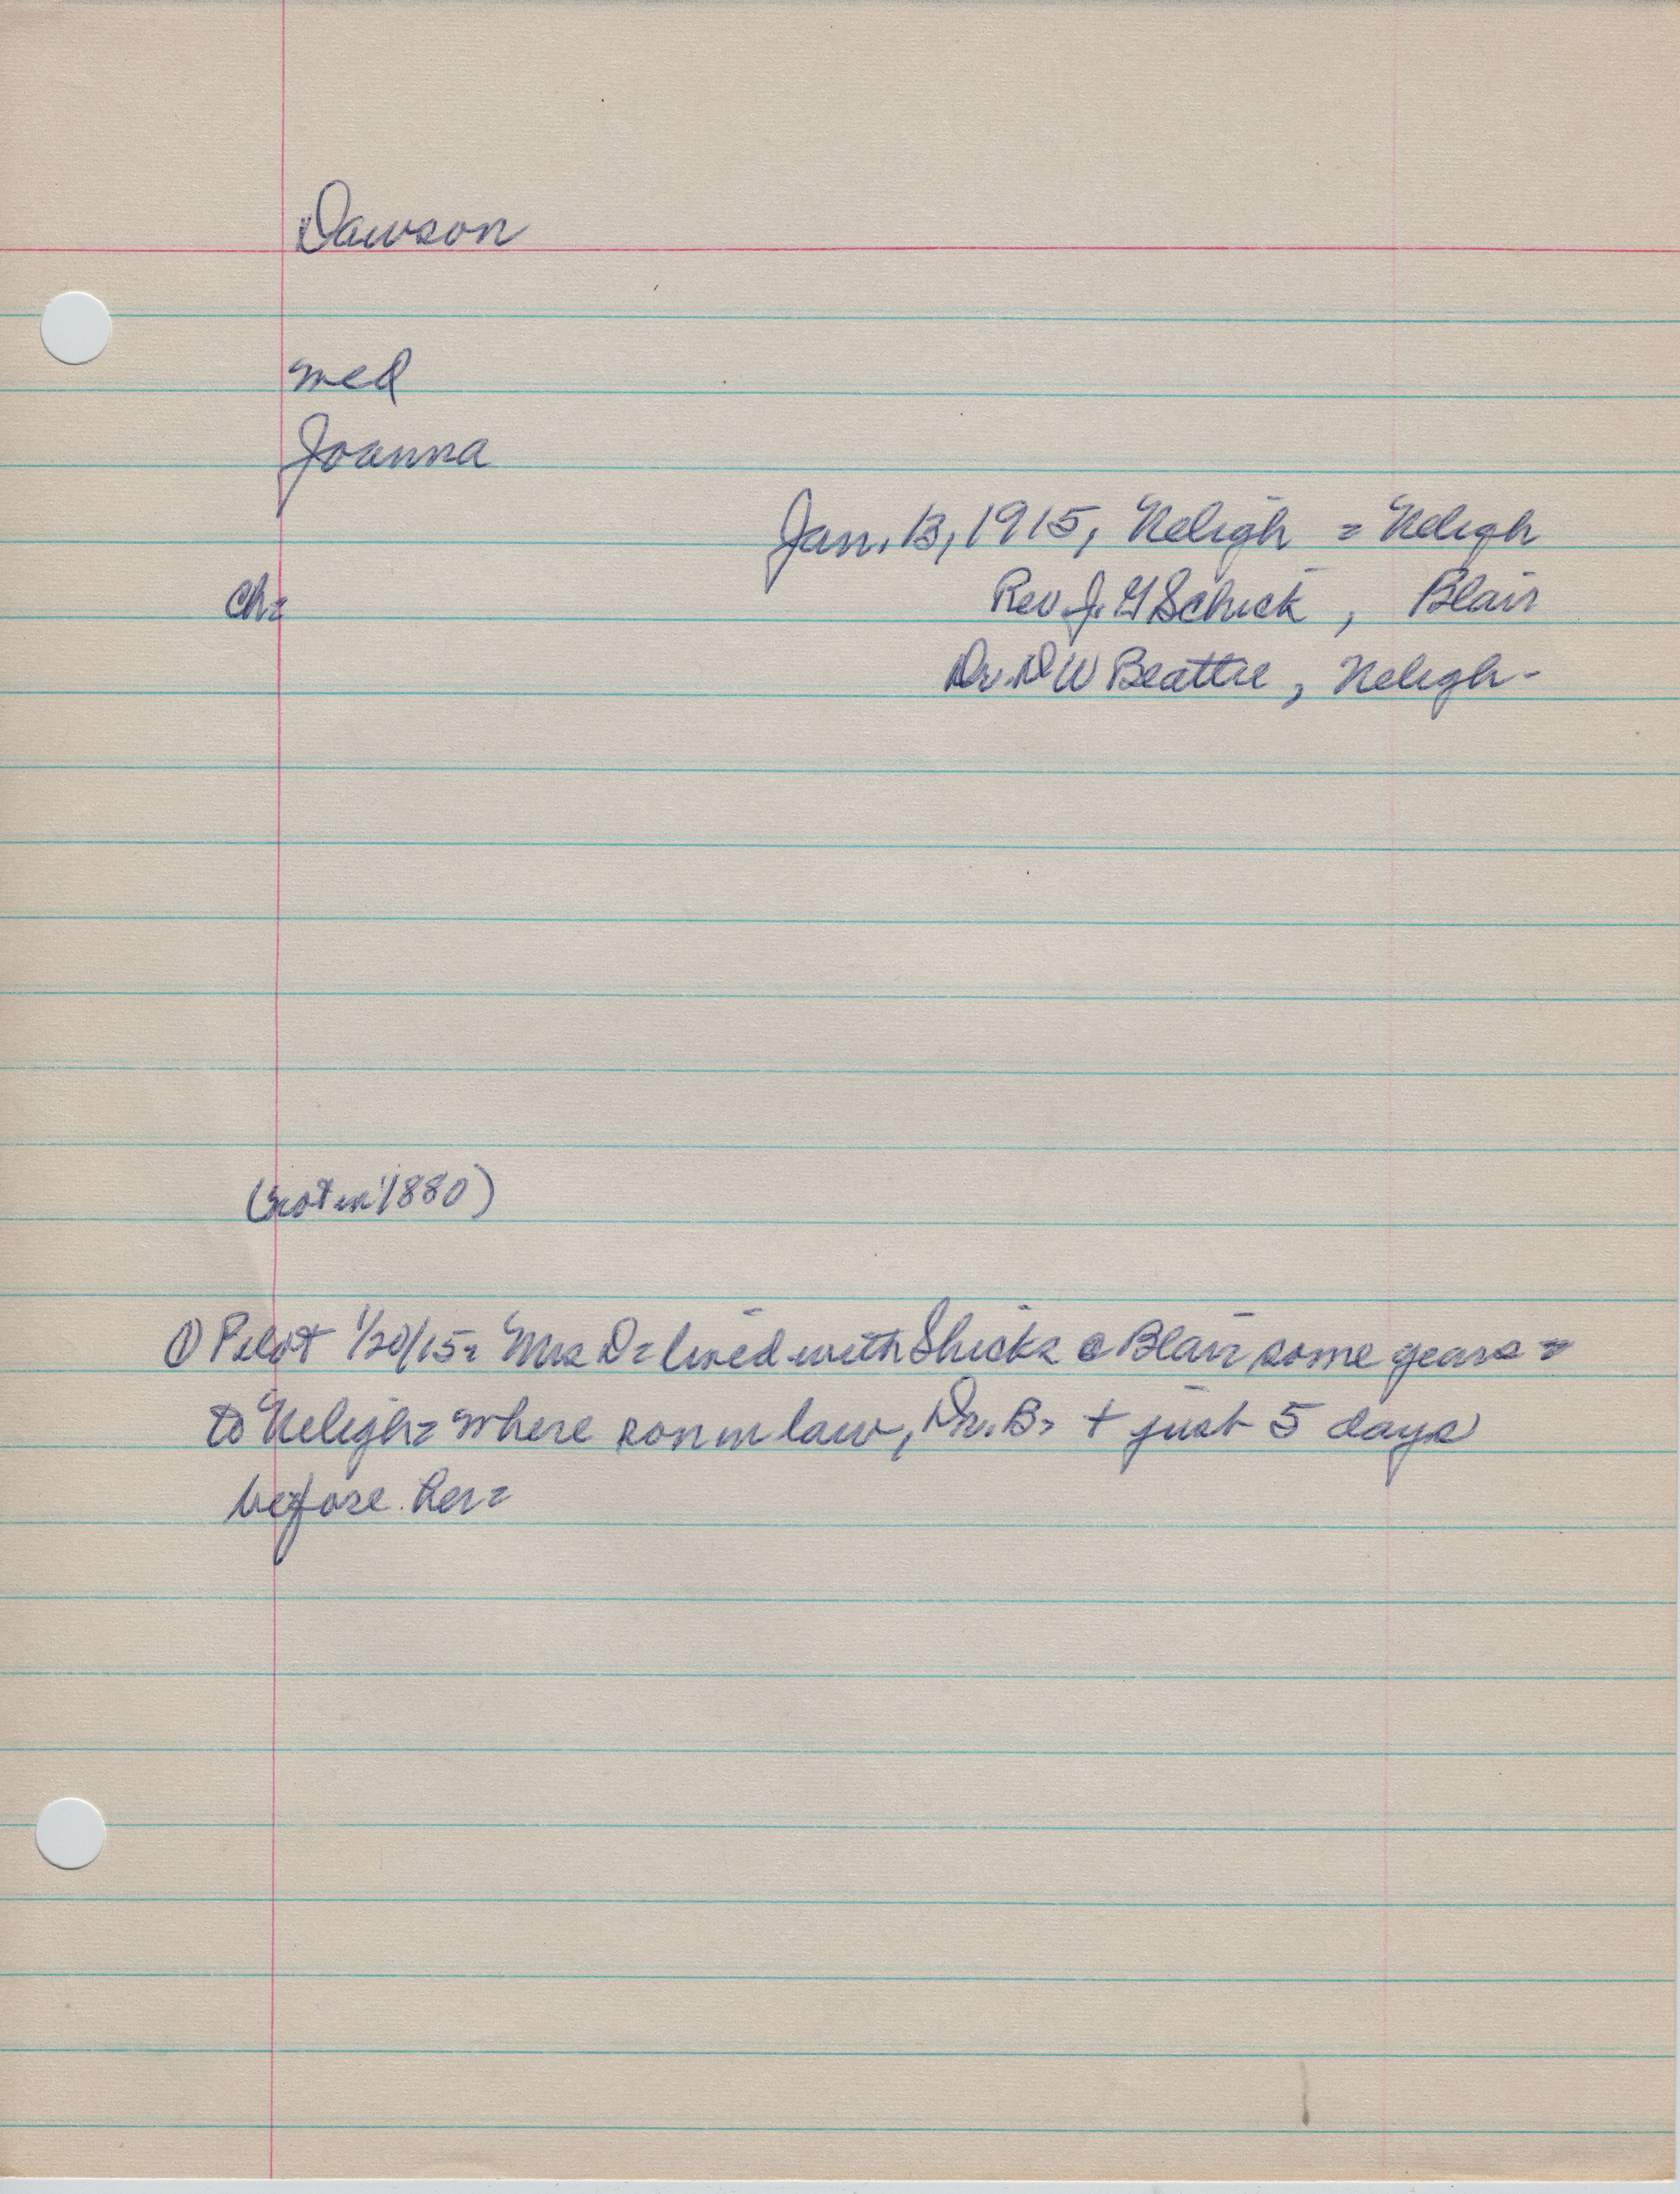 Dawson
med
Joanna
Jan. 13, 1915, Neligh = Neligh
ch= Rev J. G Schick, Blair
Dr. D W Beattie, Neligh-
(not in 1880)
① Pilot 1/20/15= Mrs D= lived with Shicks @ Blair some years =
to Neligh= where son in law, Dr. B= + just 5 days
before. Res=